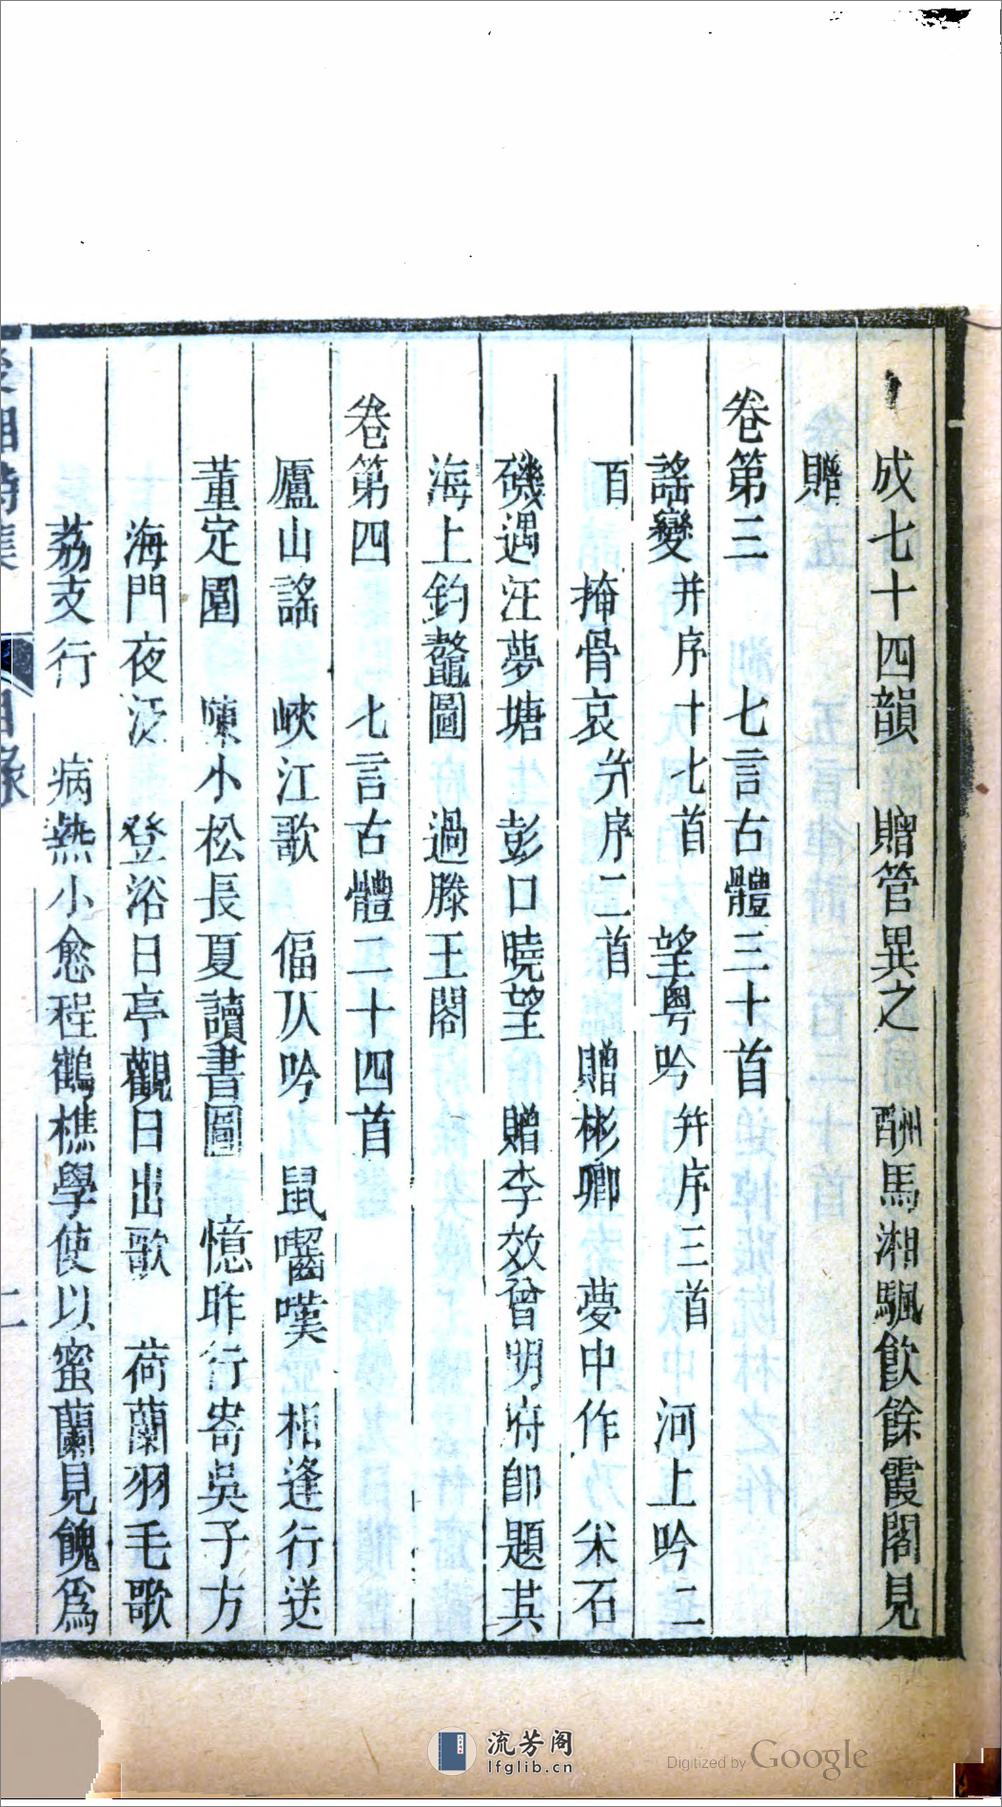 成七十四韻　贈管異之　酬馬湘颿飲餘霞閣見
贈
卷第三　七言古體三十首
謠變并序十七首　望粵吟并序三首　河上吟二
首　掩骨哀并序二首　贈彬卿　夢中作　米石
磯遇汪夢塘　彭口曉望　贈李效曾明府卽題其
海上釣鼇圖　過滕王閣
卷第四　七言古體二十四首
廬山謠　峽江歌　傴仄吟　鼠囓嘆　相逢行送
董定園　陳小松長夏讀書圖　憶昨行寄吳子方
海門夜泛　登浴日亭觀日出歌　荷蘭羽毛歌
荔支行　病熱小愈程鶴樵學使以蜜蘭見餽爲
後湘詩集
目錄
二
流芳阁
lfglib.cn
Digitized by Google